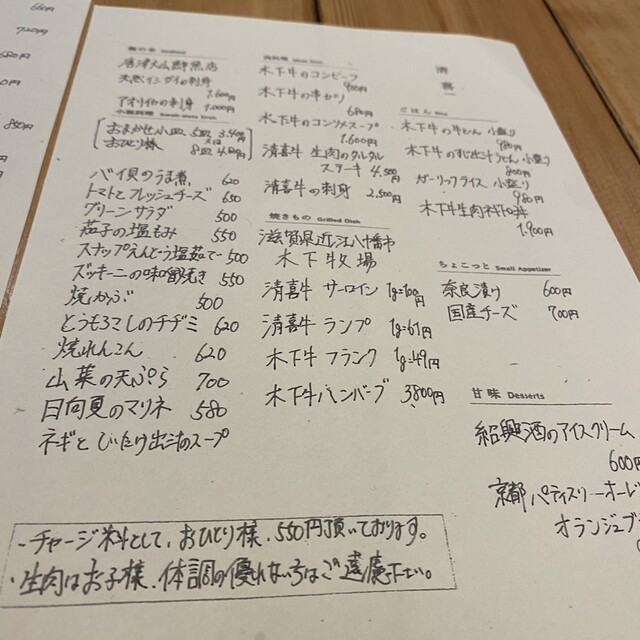 650円
720円
680円
850円
海の幸 Seafood
唐津大山鮮魚店
天然イシダイの刺身
1,600円
アオリイカの刺身 1,000円
小皿料理 Small-Plate Dish
おまかせ小皿 5皿 3.400
おひとり様 8皿 4.800
円
バイ貝のうま煮 620
トマトとフレッシュチーズ 650
グリーンサラダ 500
茄子の塩もみ 550
スナップえんどう塩茹で 500
ズッキーニの味噌焼き 550
焼かぶ 500
とうもろこしのチヂミ 620
焼れんこん 620
山菜の天ぷら 700
日向夏のマリネ 580
ネギとしいたけ出汁のスープ
肉料理 Meat Dish
木下牛のコンビーフ
900円
木下牛の串カツ
680円
木下牛のコンソメスープ
1.600円
清喜牛 生肉のタルタル
ステーキ 4,500円
清喜牛の刺身 2,500円
焼きもの Grilled Dish
滋賀県近江八幡市
木下牧場
清喜牛 サーロイン 1g=100円
清喜牛 ランプ 1g=61円
木下牛 フランク 1g=49円
木下牛ハンバーグ 3800円
清喜
ごはん Rice
木下牛の牛とん 小盛り
980円
木下牛のすじ出汁うどん 小盛り
800円
ガーリックライス 小盛り
980円
木下牛生肉ネギトロ丼
1,900円
ちょこっと Small Appetizer
奈良漬け 600円
国産チーズ 700円
甘味 Desserts
紹興酒のアイスクリーム
600円
京都 パティスリーオーレ
オランジュブ
・チャージ料として、おひとり様、550円頂いております。
・生肉はお子様、体調の優れない方はご遠慮下さい。